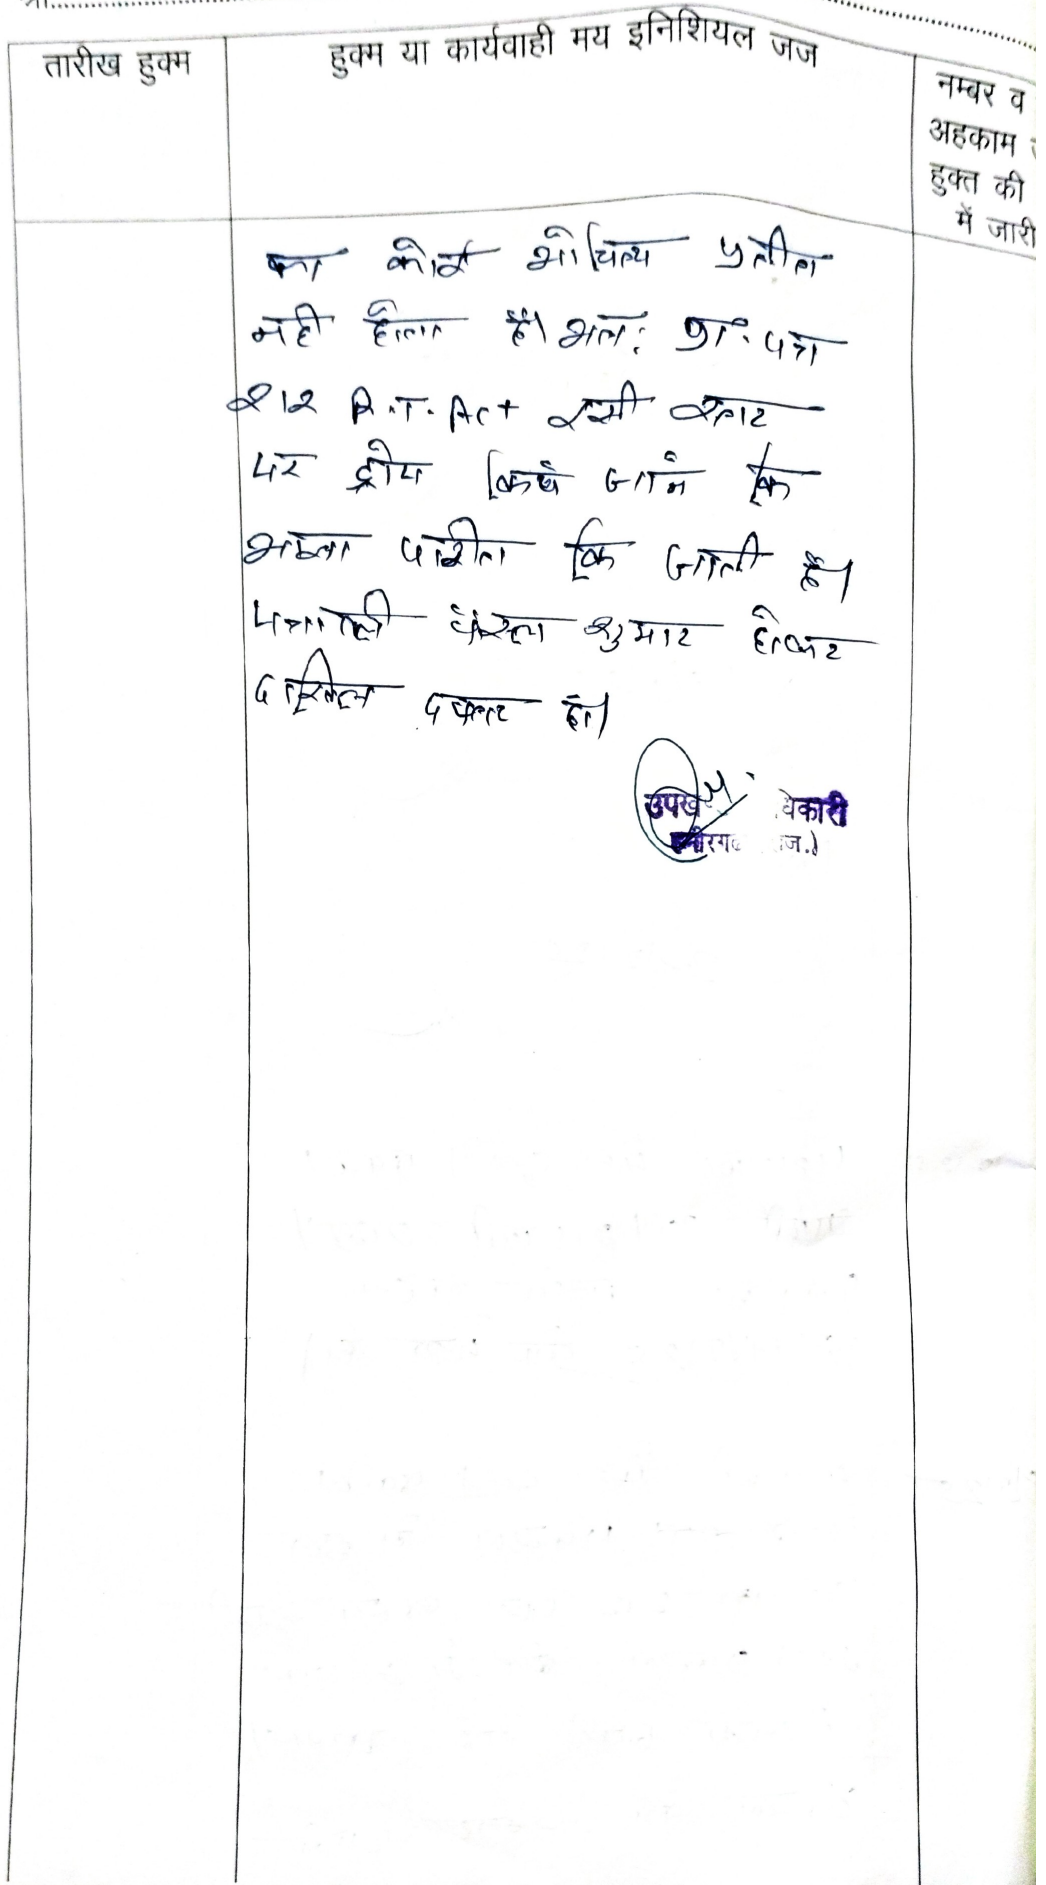 तारीख हुक्म
हुक्म या कार्यवाही मय इनिशियल जज
नम्बर व
अहकाम
हुक्त की
में जारी
का कोई औचित्य प्रतीत
नही होता है। अतः प्रा. पत्र
212 R.T. Act इसी स्तर
पर ड्रोप किये जाने कि
आज्ञा पारीत कि जाती है।
पत्रावली फैसल शुमार होकर
दाखिल दफ्तर हो।
उपख विकारी
ज.)